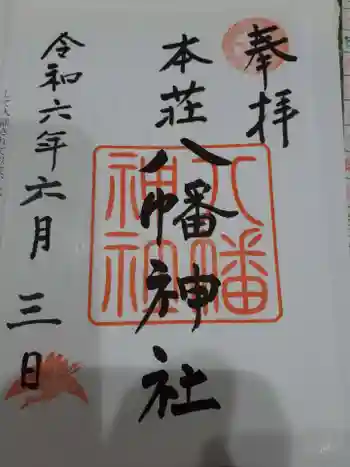 奉拝
本荘
八幡神社
八幡
神社
令和六年六月三日